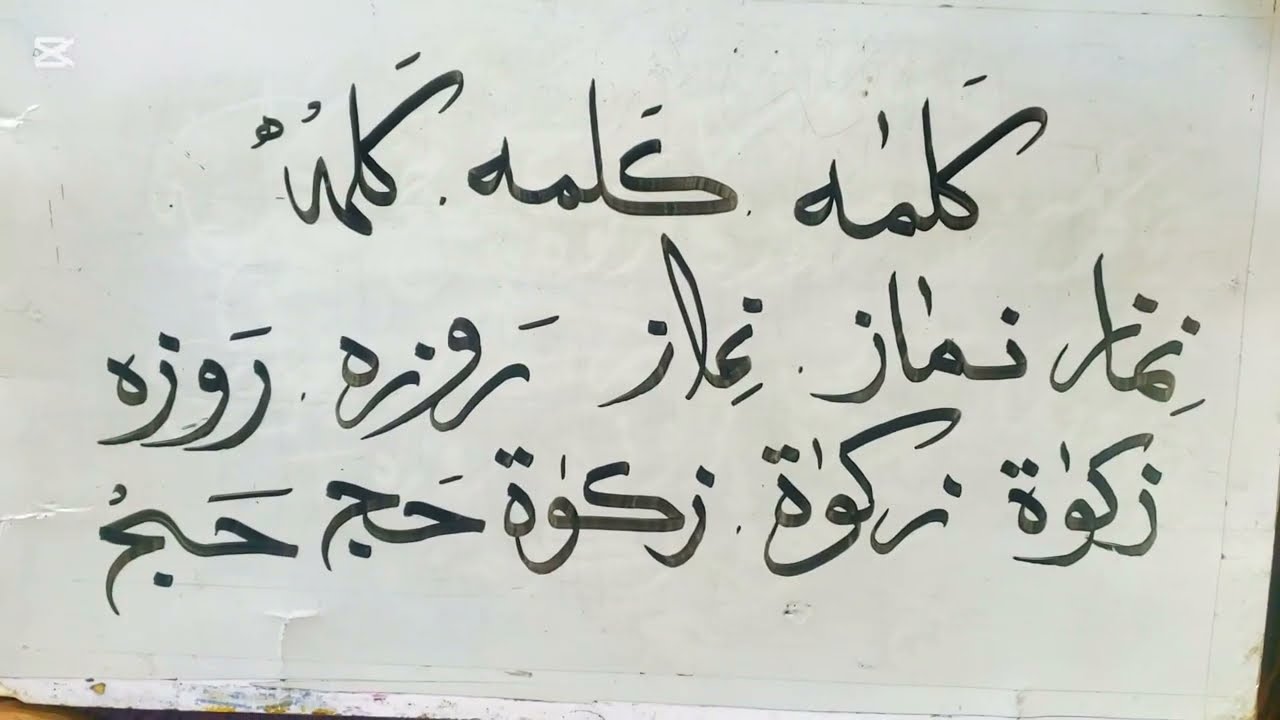 کَلمٰہ کَلمہ . کَلمہُ
نِماز نمٰاز . نِماز رَوزہ . رَوزِہ
زکوٰۃ زکوٰۃ . زکوٰۃ حَج حَجُ